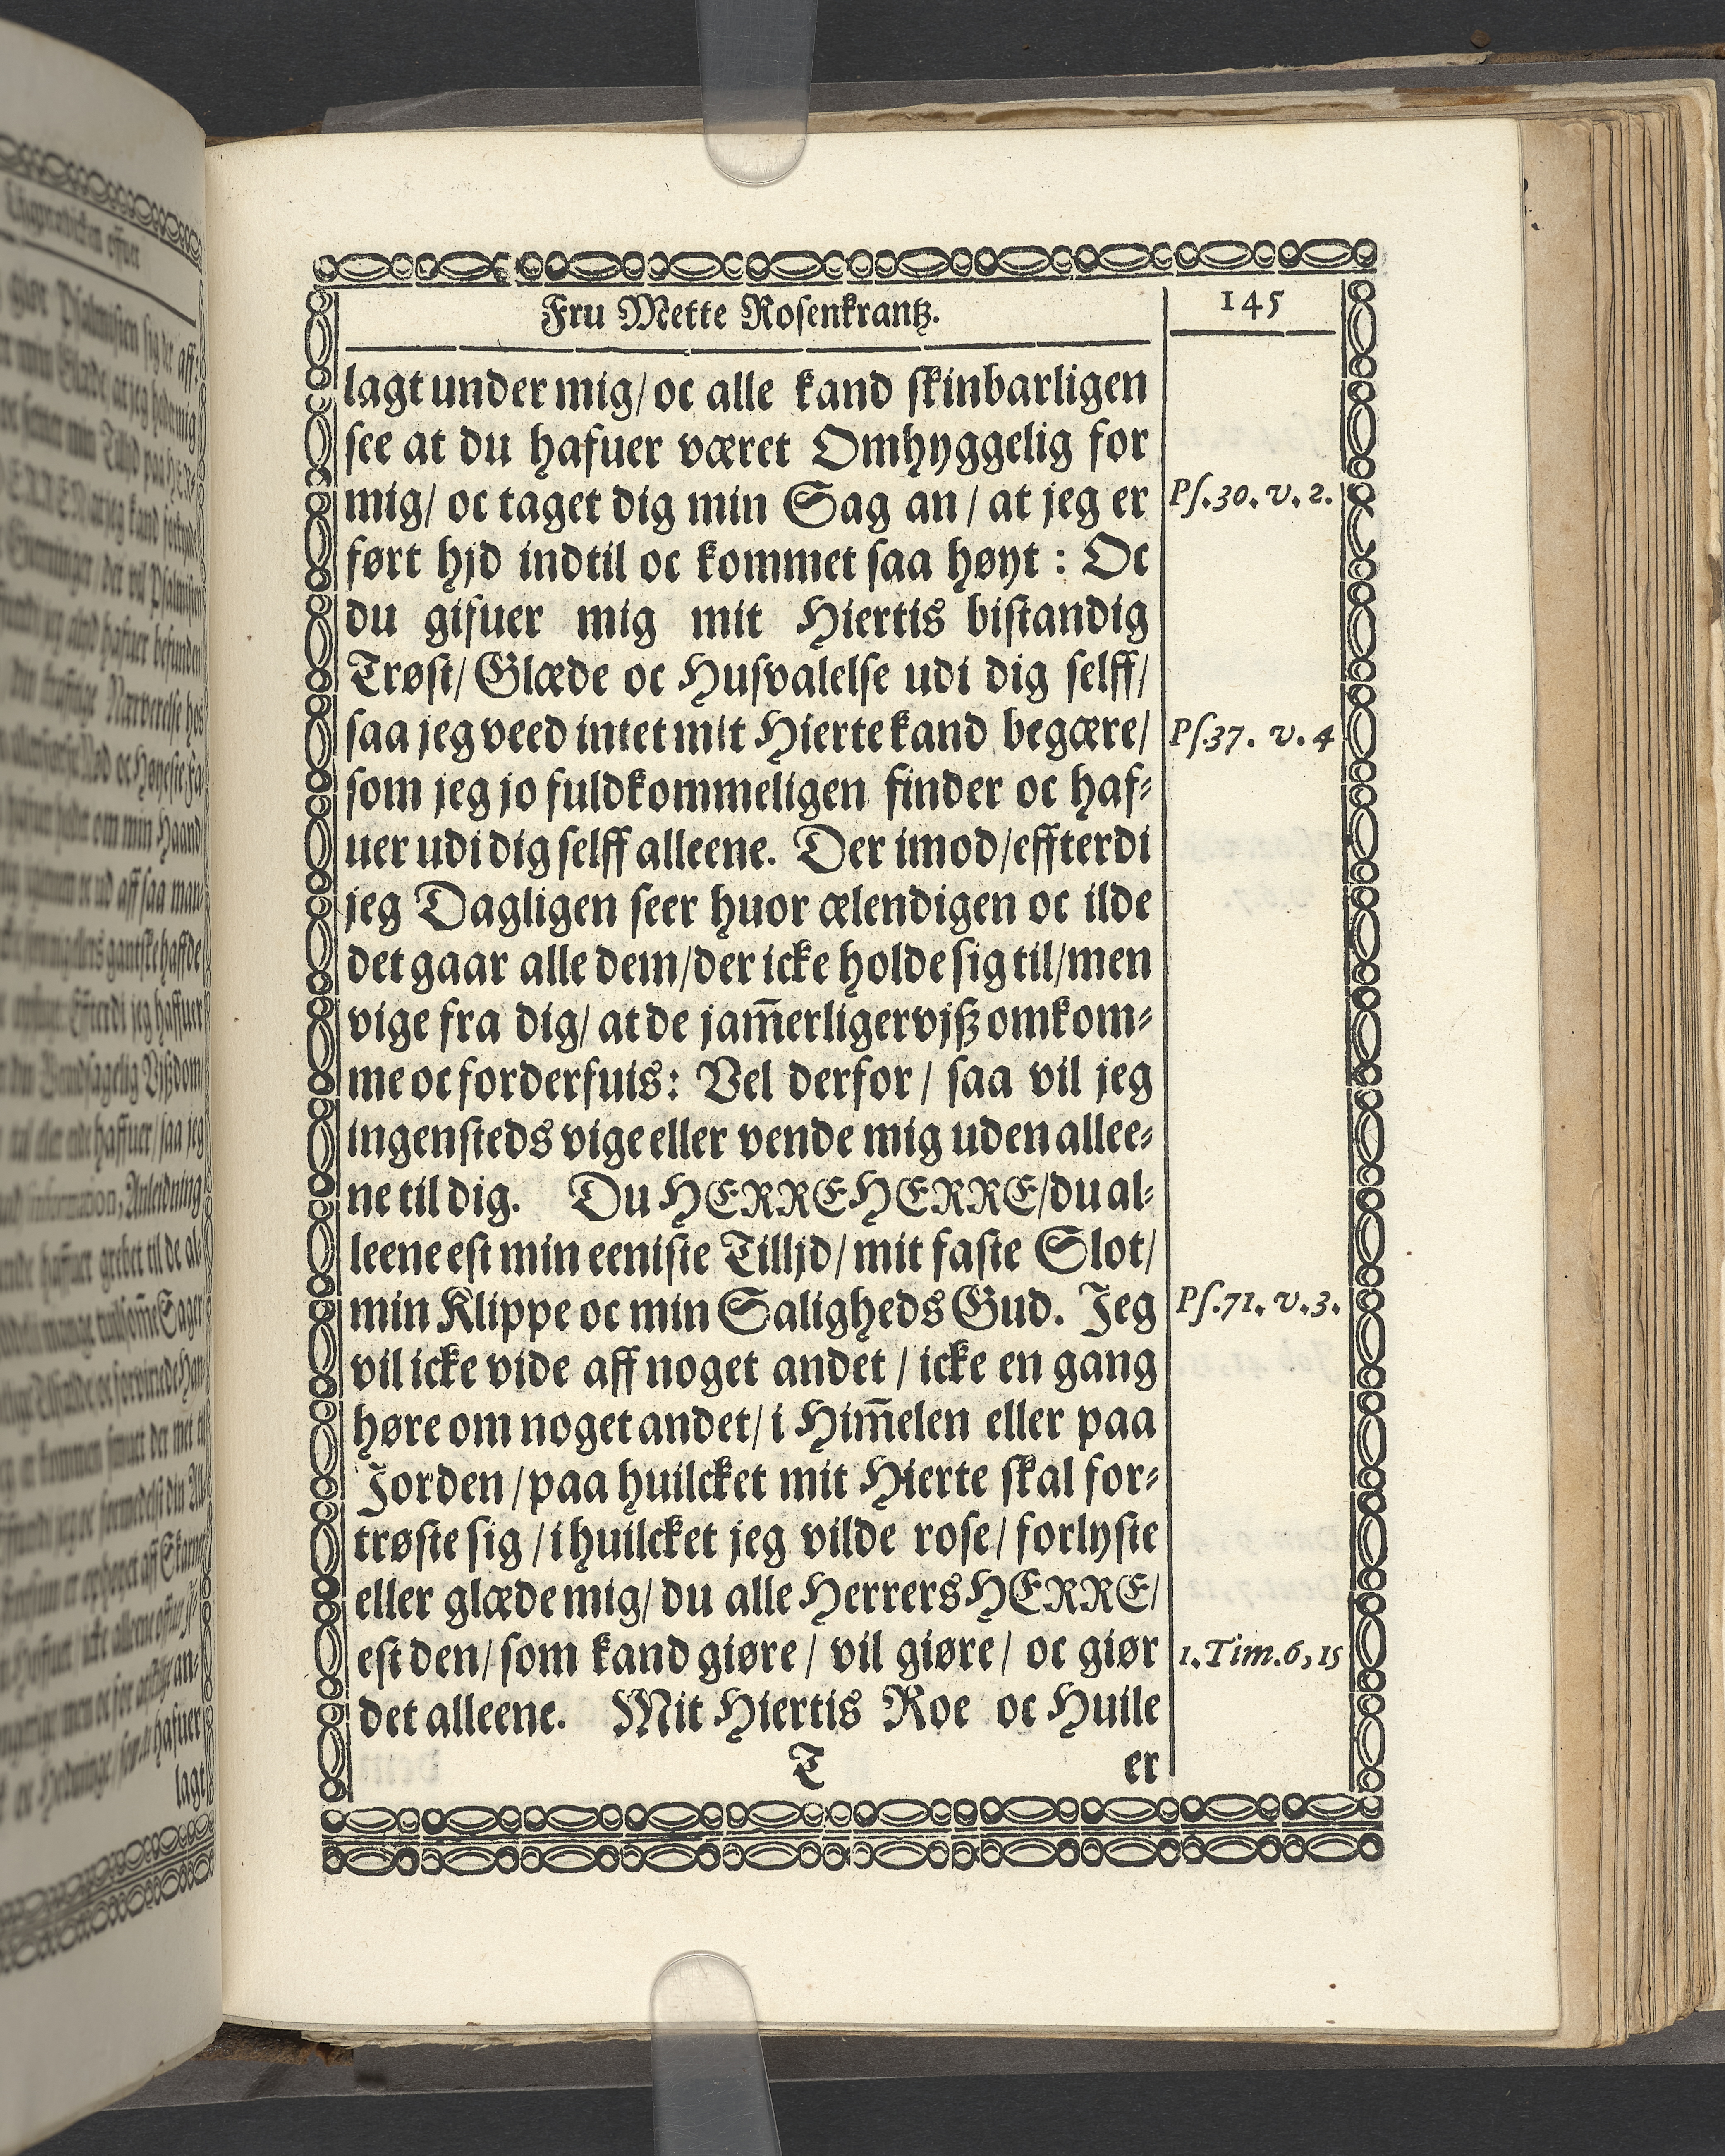 Fru Mette Rosenkrantz.
145
lagt under mig/ oc alle kand skinbarligen
see at du hafuer været Omhyggelig for
mig/ oc taget dig min Sag an / at jeg er
Ps.30. v. 2.
ført hjd indtil oc kommet saa høyt : Oc
du gifuer mig mit Hiertis bistandig
Trøst/ Glæde oc Husvalelse udi dig selff/
saa jeg veed intet mit Hierte kand begære/
Ps.37. v. 4
som jeg jo fuldkommeligen finder oc haf-
uer udi dig selff alleene. Der imod/effterdi
jeg Dagligen seer huor ælendigen oc ilde
det gaar alle dem/der icke holde sig til/men
vige fra dig/ at de jam̅erligervjß omkom-
me oc forderfuis: Vel derfor / saa vil jeg
ingensteds vige eller vende mig uden allee-
ne til dig. Du HERRE HERRE/du al-
leene est min eeniste Tilljd/ mit faste Slot/
min Klippe oc min Saligheds Gud. Jeg
Ps.71. v.3.
vil icke vide aff noget andet / icke en gang
høre om noget andet/ i Him̅elen eller paa
Jorden /paa huilcket mit Hierte skal for-
trøste sig / i huilcket jeg vilde rose/ forlyste
eller glæde mig/ du alle Herrers HERRE/
est den/ som kand giøre / vil giøre/ oc giør
1.Tim.6,15
det alleene. Mit Hiertis Roe oc Huile
T
er